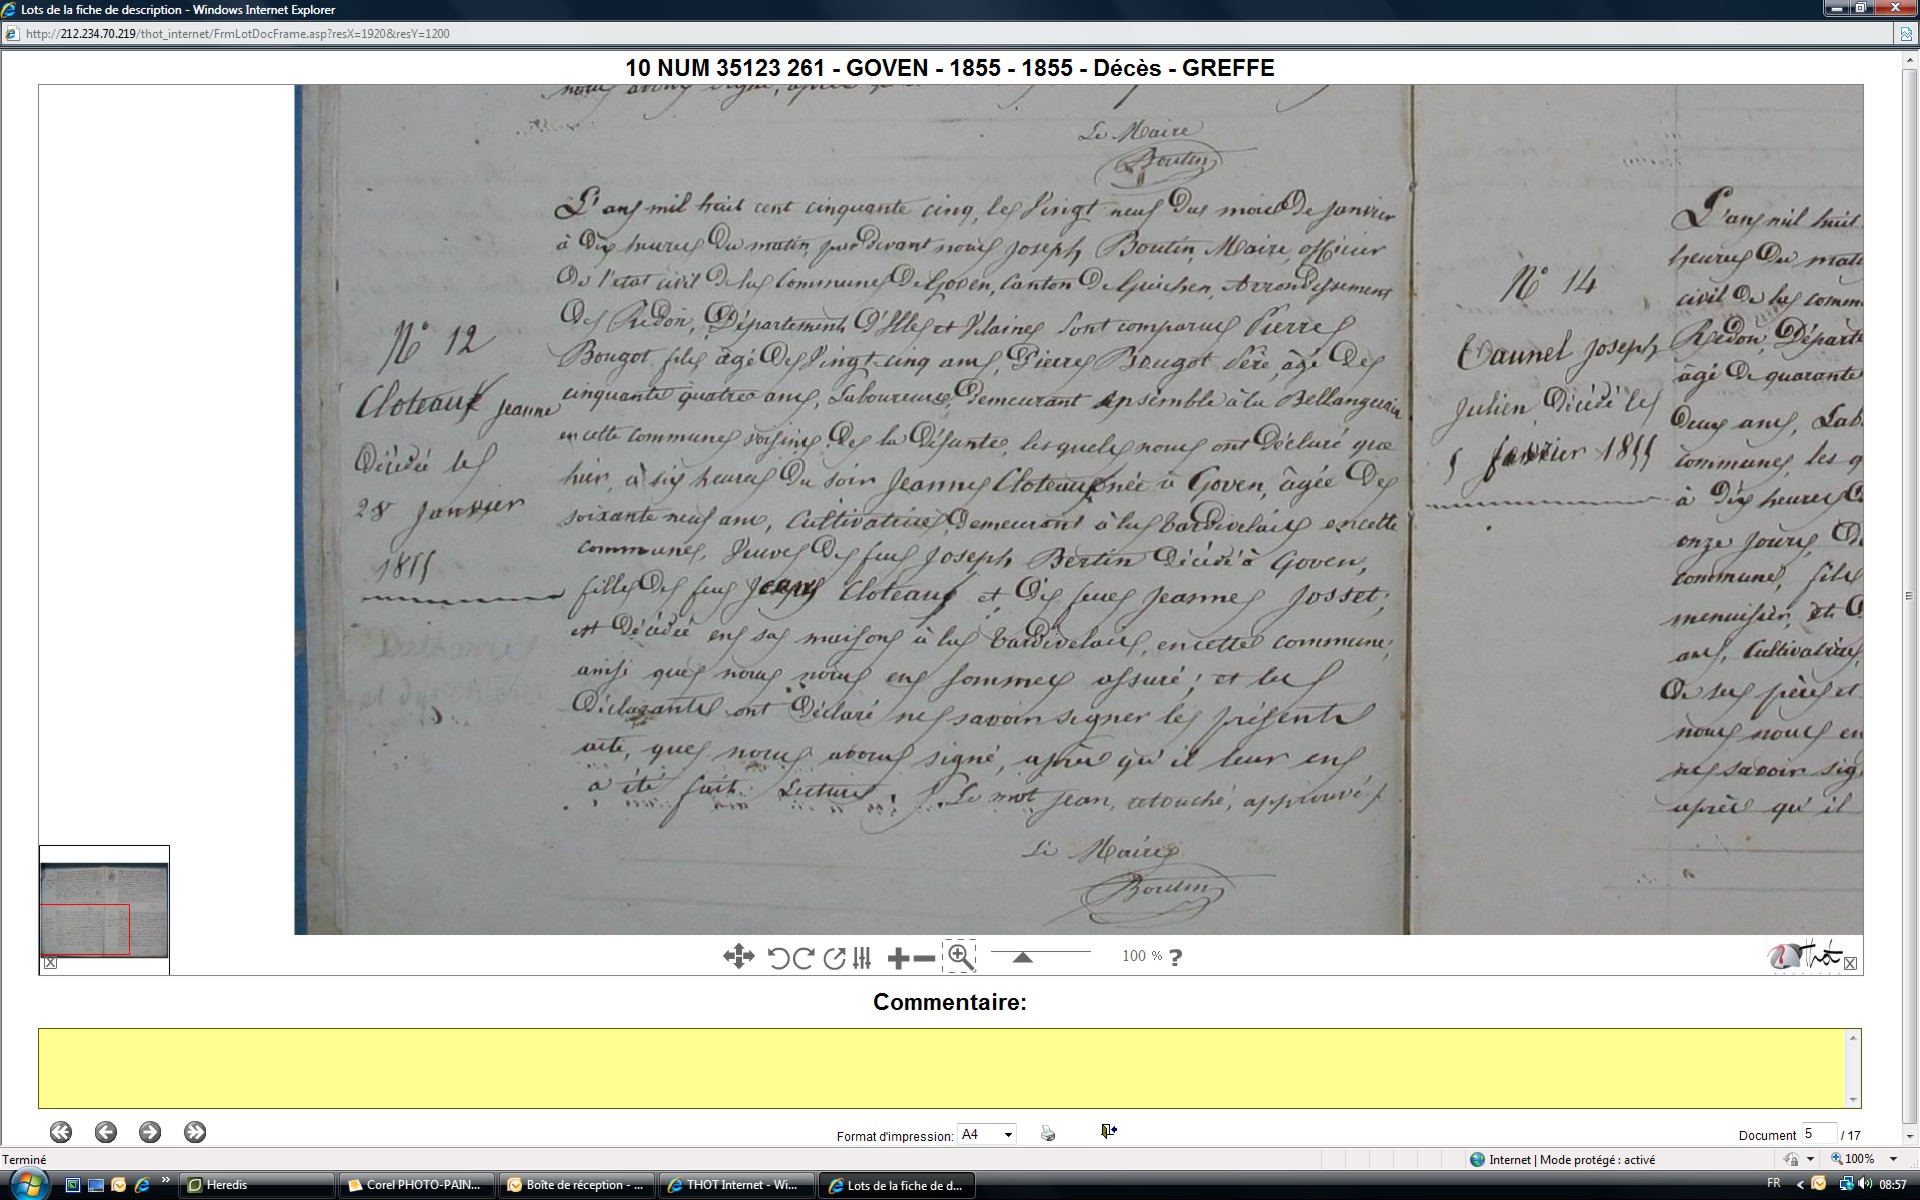 Lots de la fiche de description - Windows Internet Explorer
http://212.234.70.219/thot_internet/FrmLotDocFrame.asp?resX=1920&resY=1200
10 NUM 35123 261 - GOVEN - 1855 - 1855 - Décès - GREFFE
nous avons signé, après
Le Maire
Boutin
N° 12
Cloteaux Jeanne
Décédée le
28 Janvier
1855
L'an mil huit cent cinquante cinq, le Vingt neuf du mois de Janvier
à dix heures du matin, par devant nous Joseph Boutin, Maire, officier
de l'etat civil de la Commune de Goven, Canton de Guichen, Arrondissement
de Redon, Département d'Ille et Vilaine sont comparus Pierre
Bougot fils âgé de Vingt-cinq ans, Pierre Bougot Père, âgé de
cinquante quatre ans, Laboureurs, demeurant ensemble à la Bellangerais
en cette commune voisins de la Défunte, lesquels nous ont déclaré que
hier, à six heures du soir Jeanne Cloteaux née à Goven, âgée de
soixante neuf ans, Cultivatrice, demeurant à la Tardivelais en cette
commune, Veuve de feu Joseph Bertin décédé à Goven,
fille de feu Jean Cloteaux et de feue Jeanne Josset,
est décédée en sa maison à la Tardivelais, en cette commune,
ainsi que nous nous en sommes assuré; et les
déclarants ont déclaré ne savoir signer le présent
acte, que nous avons signé, après qu'il leur en
a été fait Lecture. Le mot Jean, retouché, approuvé
Le Maire
Boutin
N° 14
Julien Décédé le
5 Janvier 1855
L'an mil huit
heures du mat
civil de la comm
Redon, Départe
âgé de quarante
deux ans, Lab
commune, les q
à dix heures d
onze jours, d
commune, fils
menuisier, et d
ans, Cultivatrice,
de ses père et
nous nous en
ne savoir sig
après qu'il
100 % ?
Thot
Commentaire:
Format d'impression: A4
Document 5 / 17
Terminé
Internet | Mode protégé : activé
100%
Heredis
Corel PHOTO-PAIN...
Boîte de réception - ...
THOT Internet - Wi...
Lots de la fiche de d...
FR
08:57